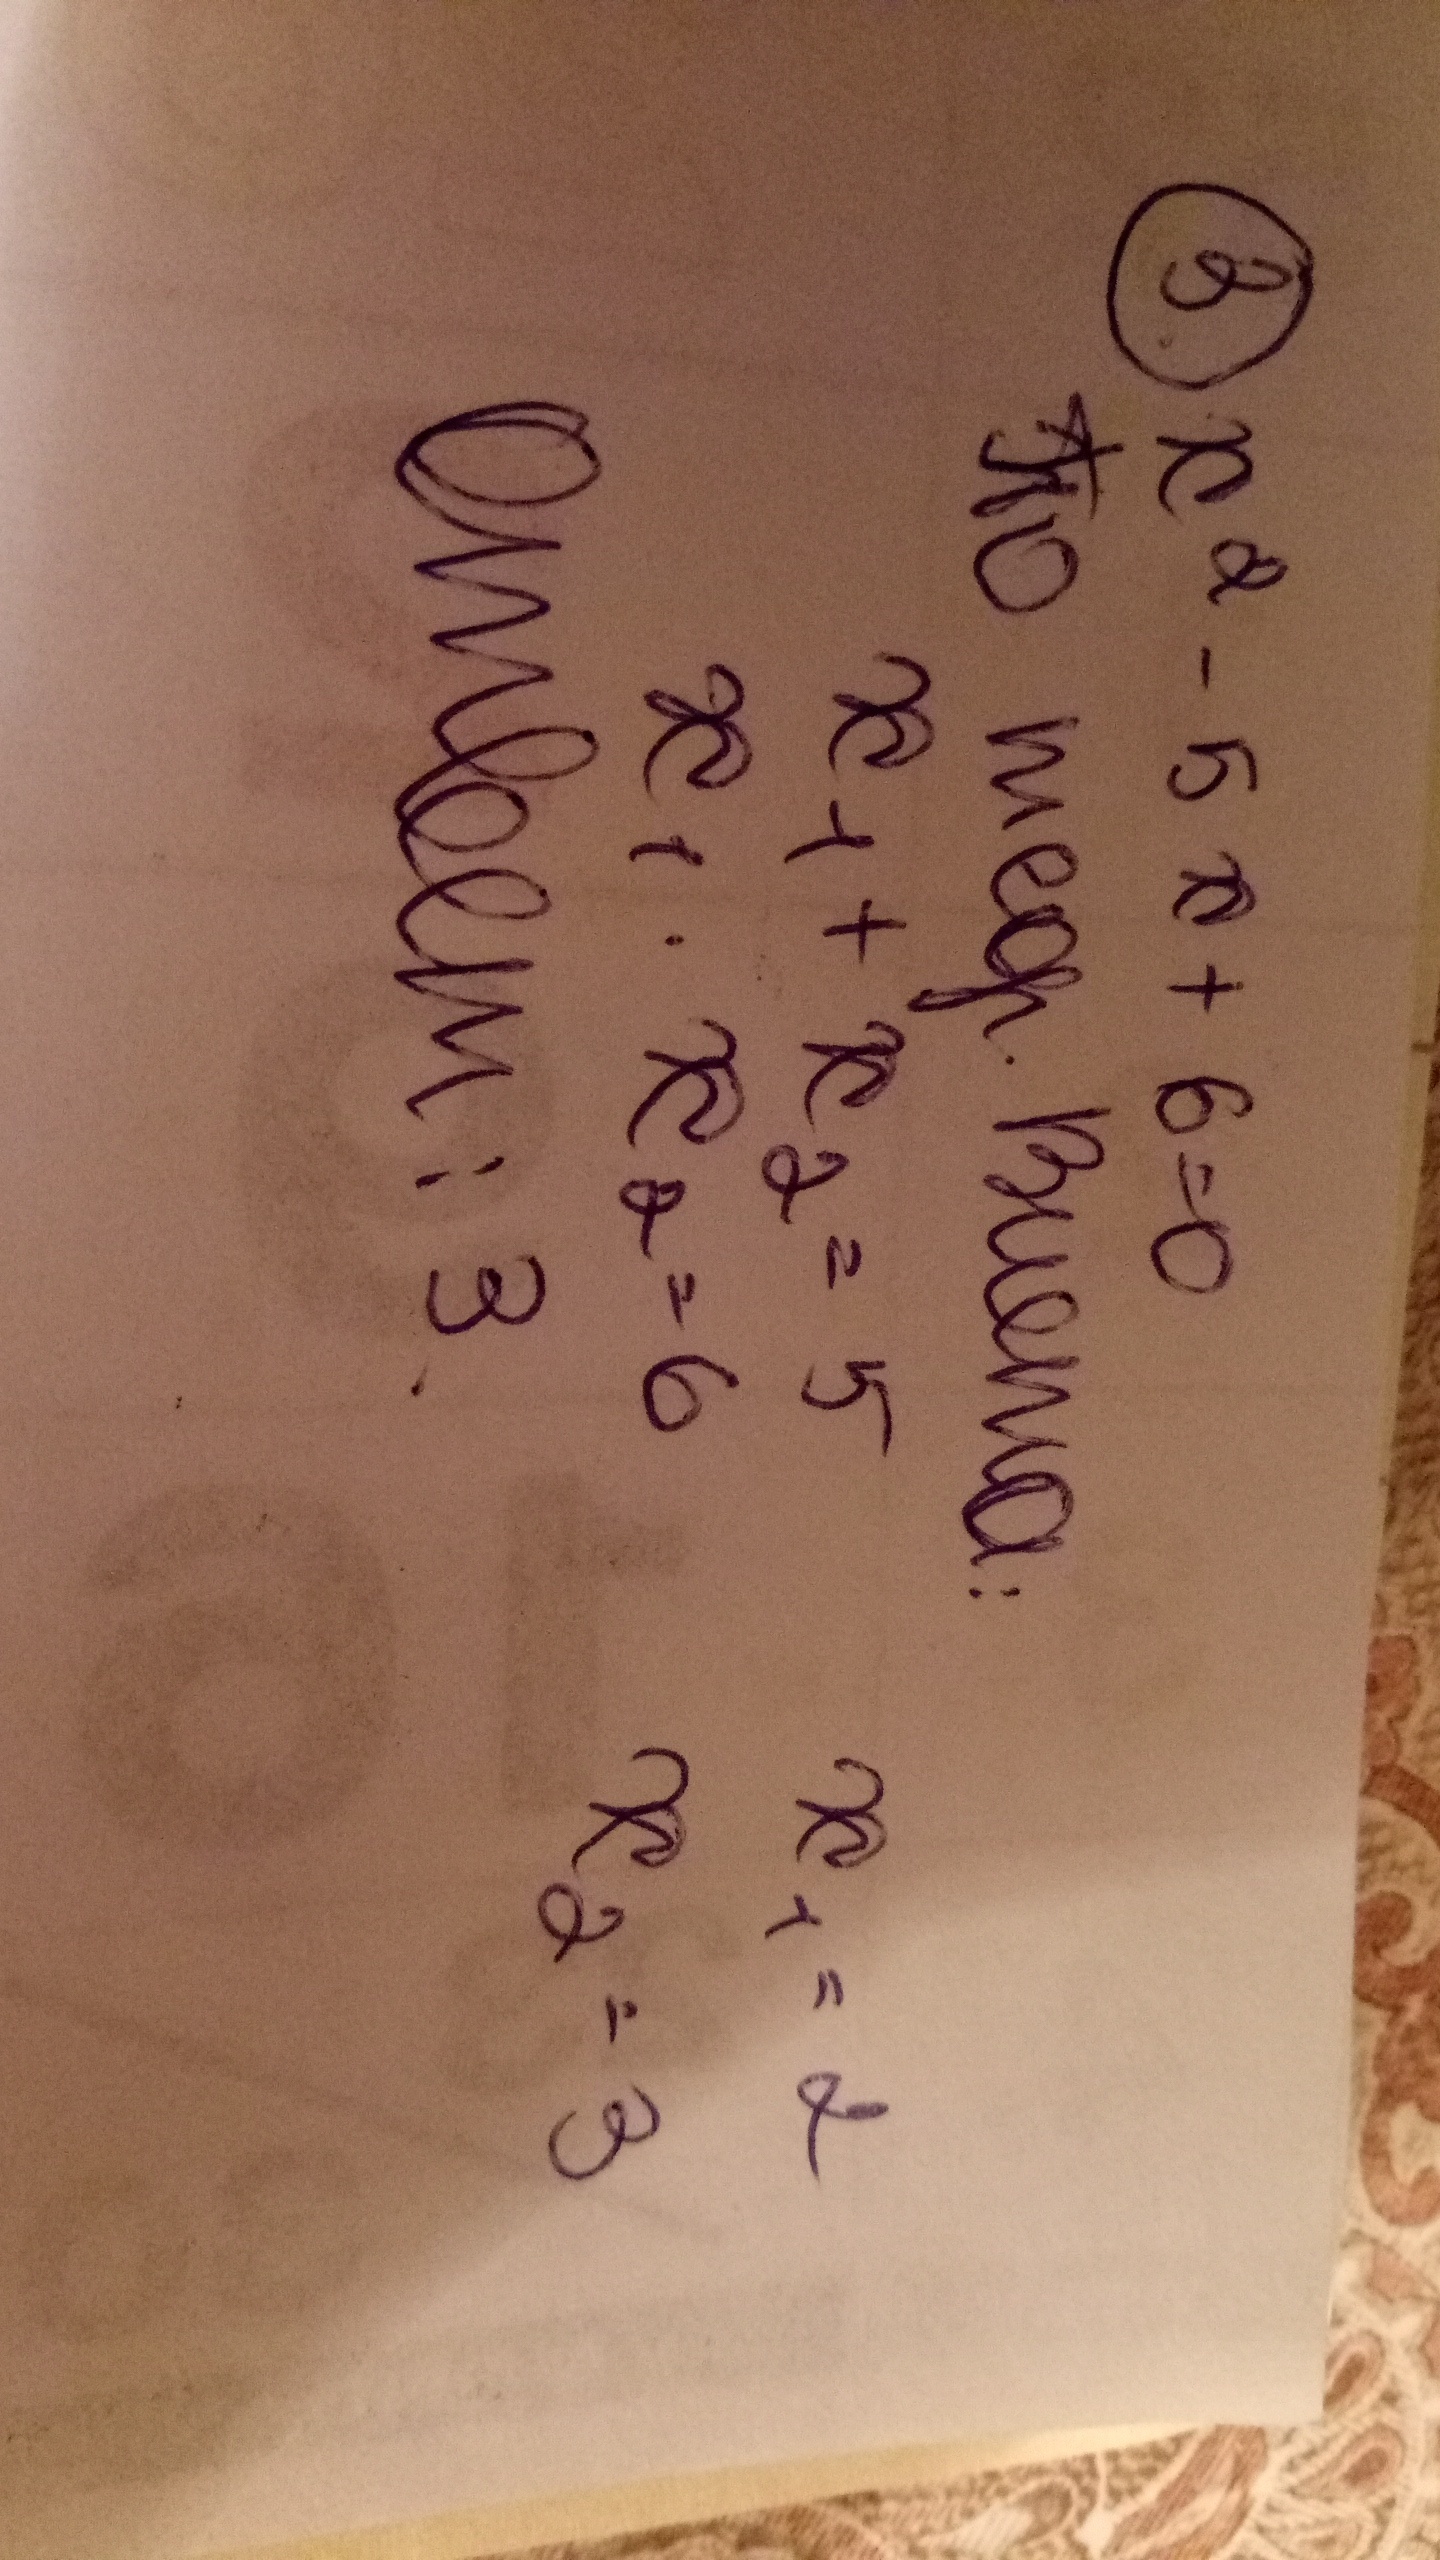 9. x² - 5x + 6 = 0
По теор. Виета:
x₁ + x₂ = 5
x₁ = 2
x₁ · x₂ = 6
x₂ = 3
Ответ: 3.